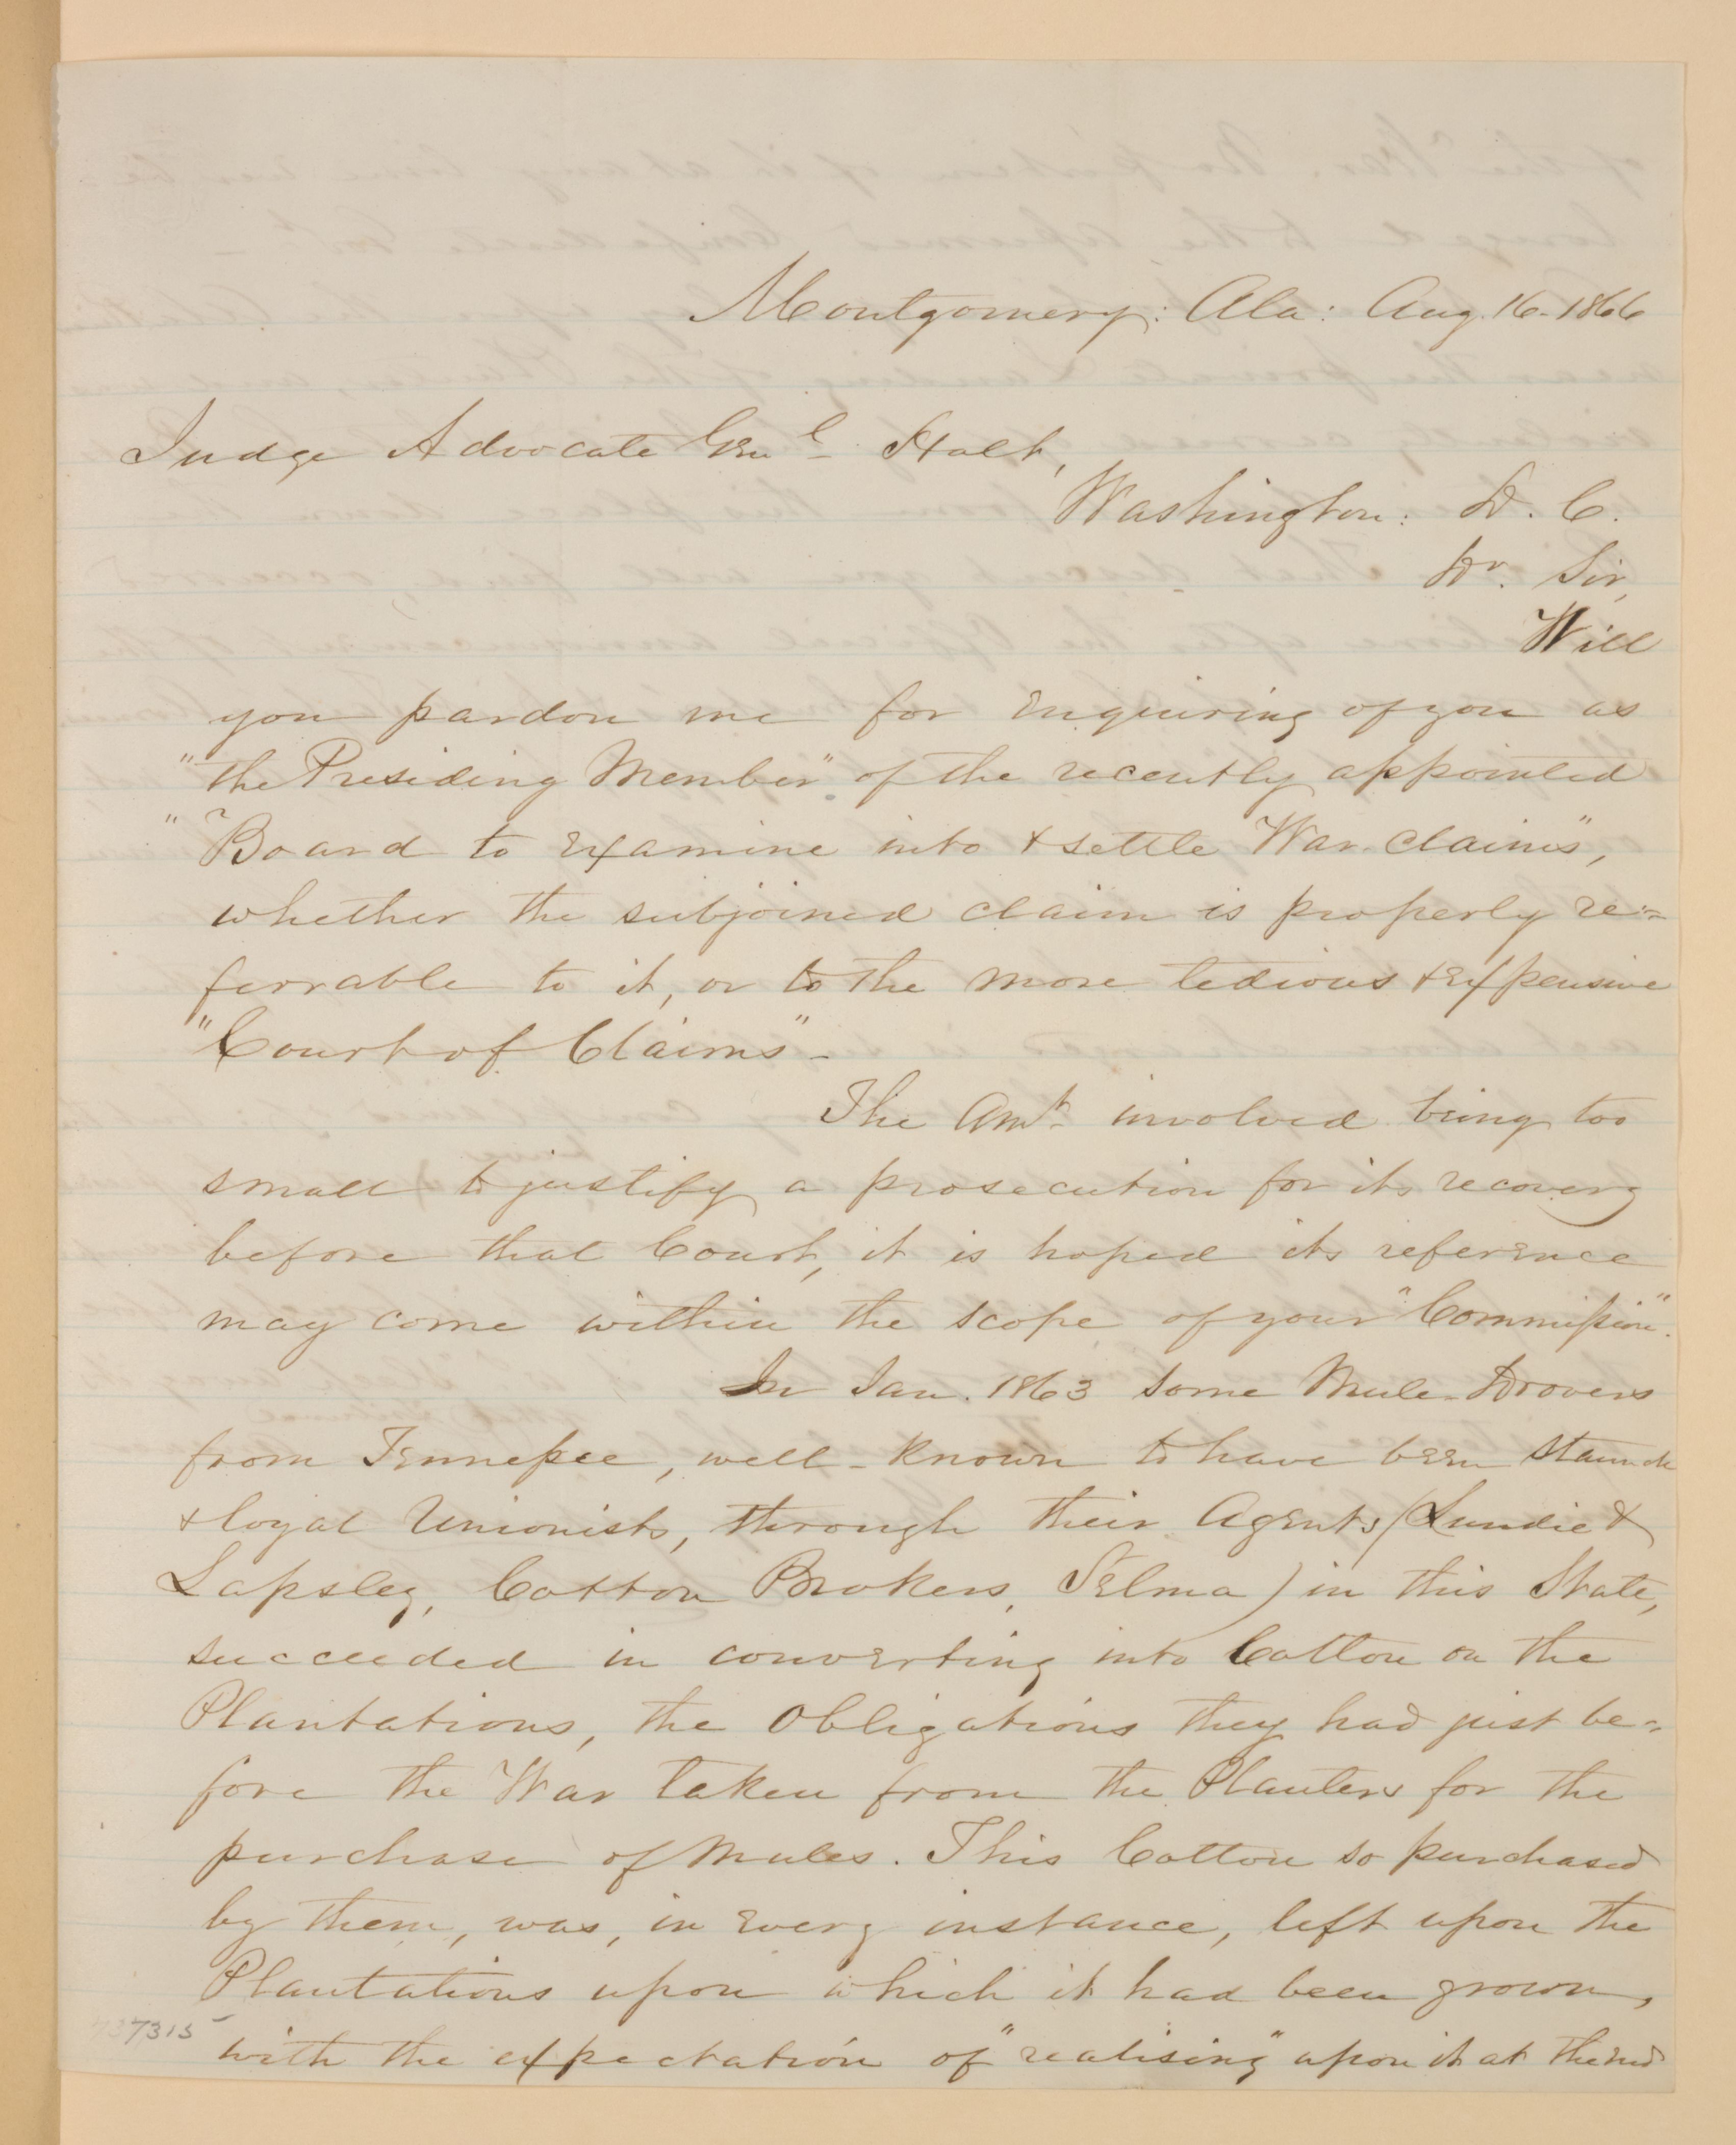 Montgomery: Ala: Aug. 16. 1866
Judge Advocate Genl. Holt,
Washington: D. C.
Dr. Sir,
Will
you pardon me for enquiring of you as
"the Presiding Member" of the recently appointed
"Board to examine into & settle War claims",
whether the subjoined claim is properly re=
ferrable to it, or to the more tedious & expensive
"Court of Claims" -
The Amt. involved being too
small to justify a prosecution for its recovery
before that Court, it is hoped its reference
may come within the scope of your "Commission".
In Jan. 1863 some Mule-Drovers
from Tennessee, well-known to have been staunch
& loyal Unionists, through their Agents, (Lundie &
Lapsley, Cotton Brokers, Selma) in this State,
succeeded in converting into Cotton on the
Plantations, the Obligations they had just be=
fore the War taken from the Planters for the
purchase of Mules. This Cotton so purchased
by them, was, in every instance, left upon the
Plantations upon which it had been grown,
with the expectation of "realising" upon it at the end
7315